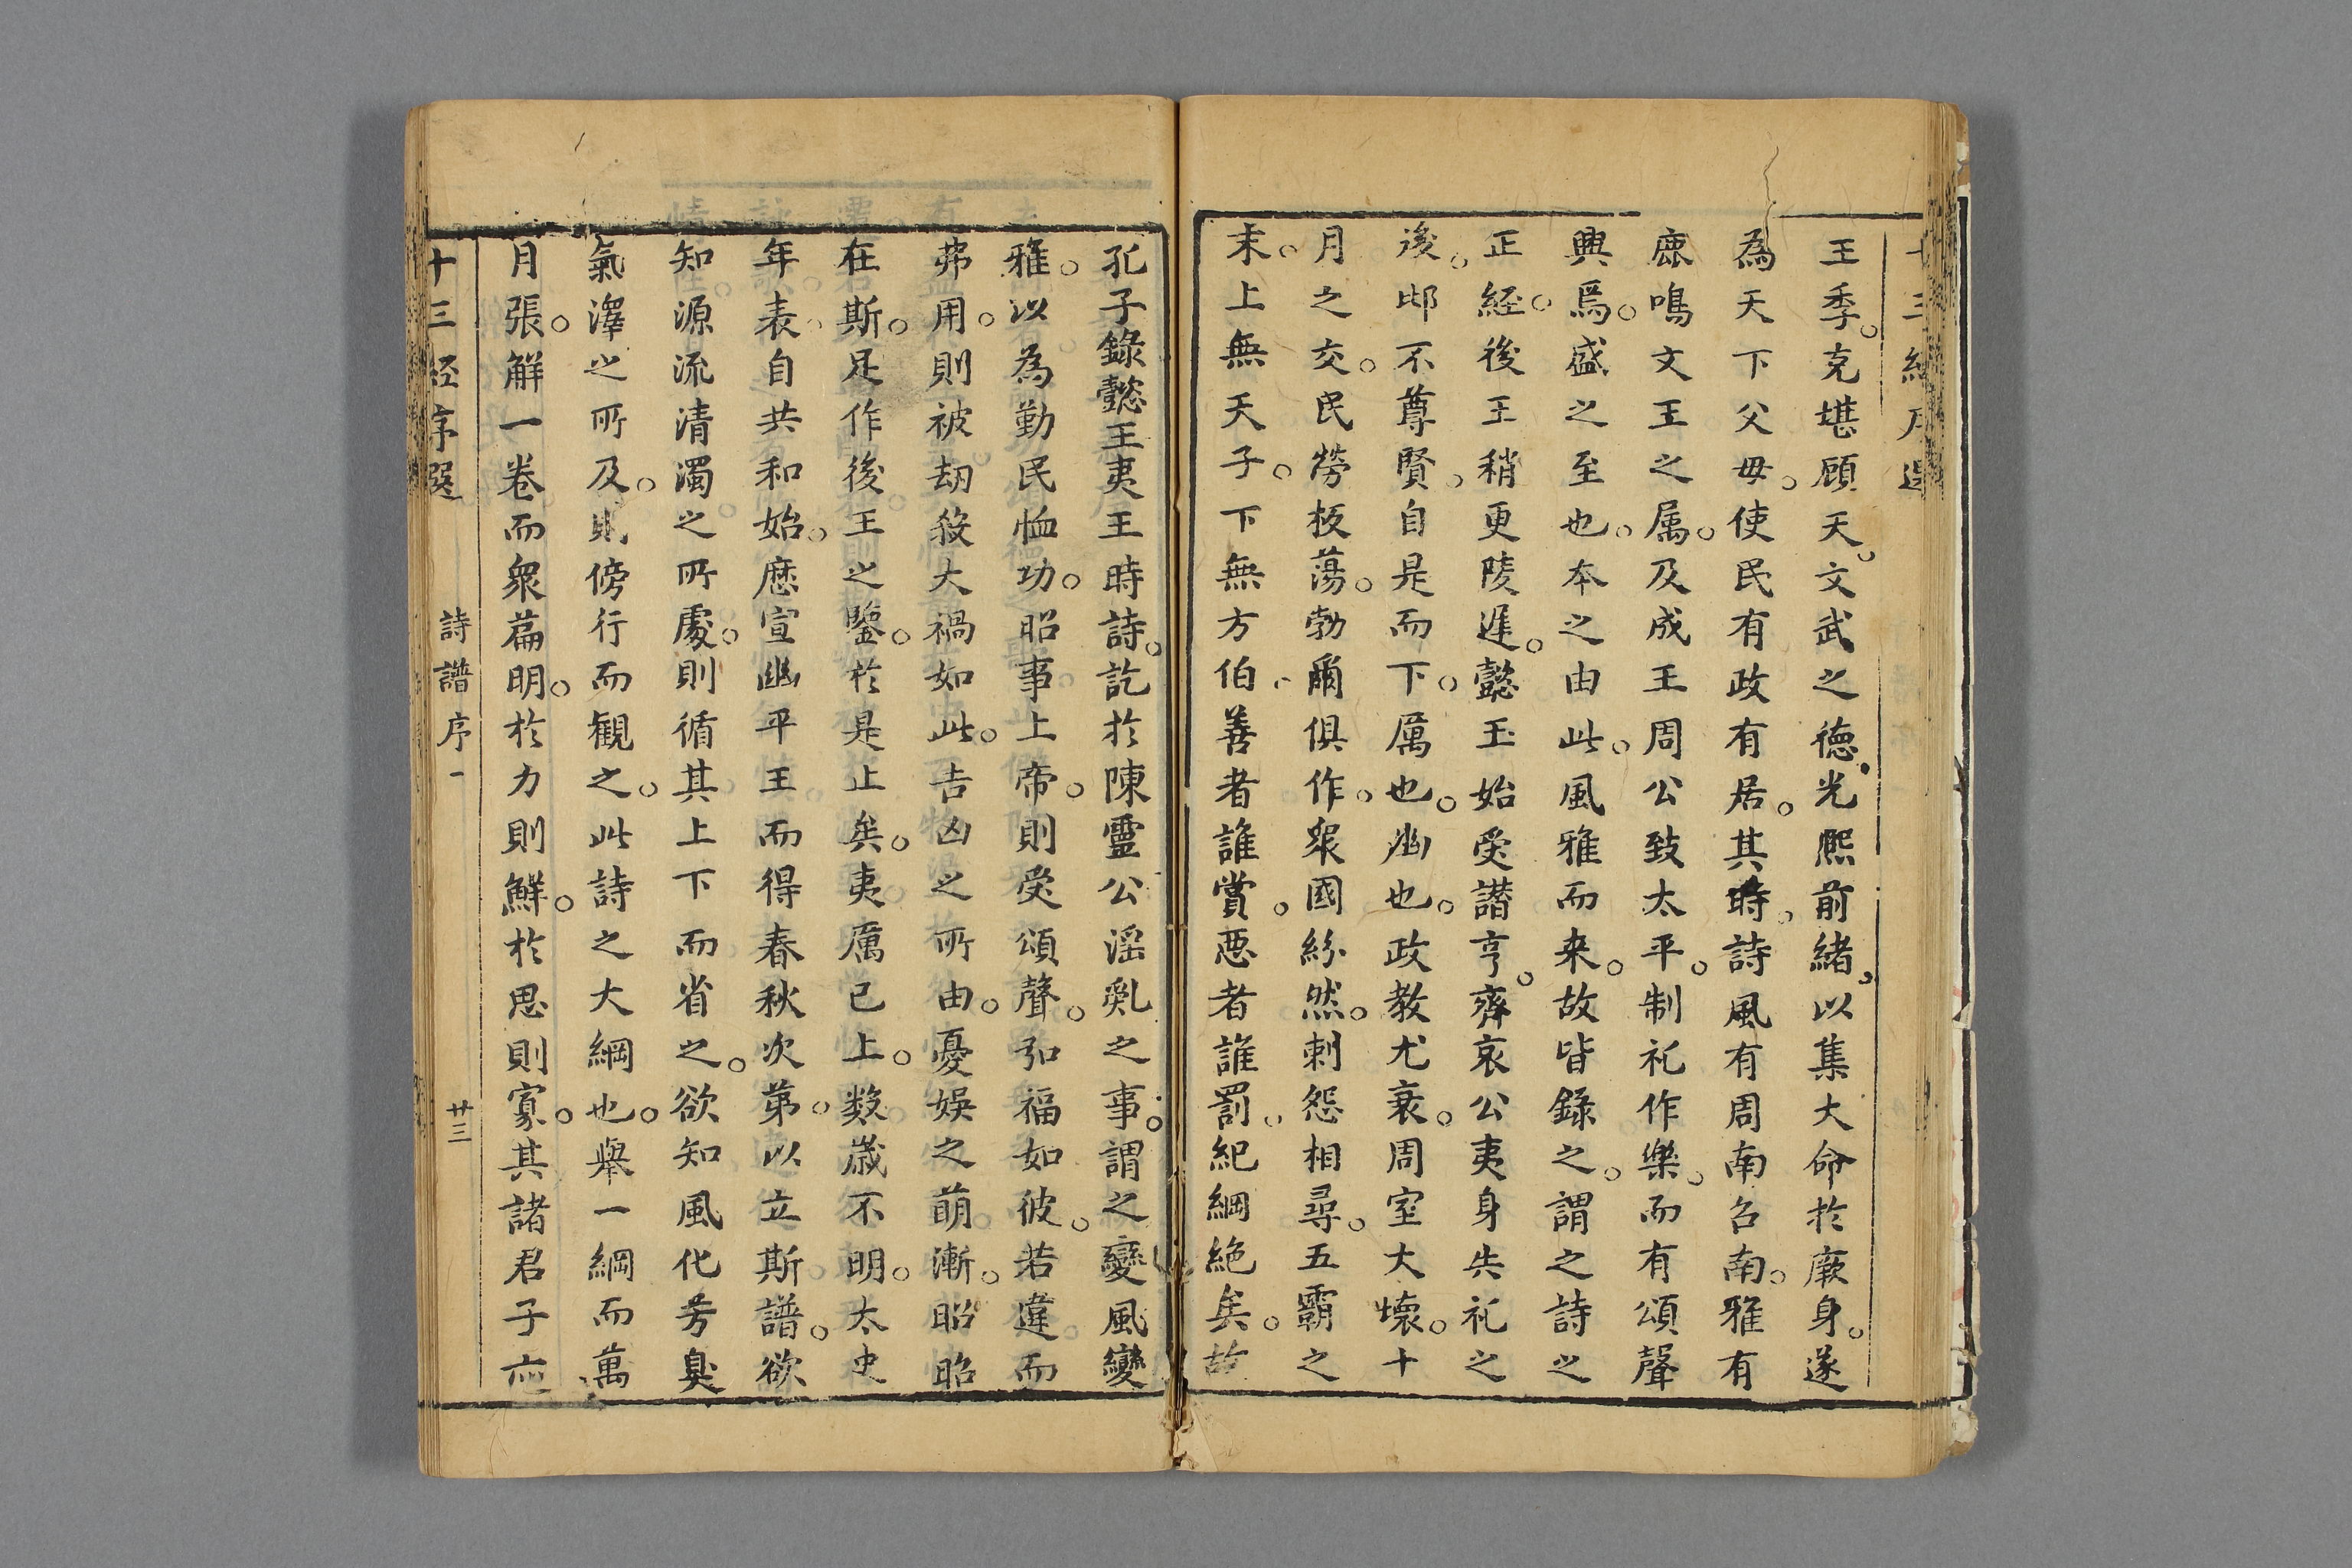 王季。克堪顧天。文武之德光熈前緒以集大命於厥身。遂
為天下父毋。使民有政有居。其時。詩風有周南名南。雅有
鹿鳴文王之属。及成王周公致太平。制礼作樂。而有頌聲
興焉。盛之至也。本之由此。風雅而来。故皆錄之。謂之詩之
正経。後王稍更陵遲。懿王始受譖亨。齊哀公夷身失礼之
後。邶不尊賢。自是而下。厲也。幽也。政教尤衰。周室大壞。十
月之交。民勞板蕩。勃爾俱作。衆國紛然。刺怨相尋。五霸之
末。上無天子。下無方伯。善者誰賞。惡者誰罰。紀綱絶矣。故
孔子錄懿王夷王時詩。訖於陳靈公淫乱之事。謂之變風變
雅。以為勤民恤功。昭事上帝。則受頌聲。弘福如彼。若違而
弗用。則被刼殺大禍如此。吉凶之所由。憂娛之萌漸。昭昭
在斯。足作後王之鑒。於是止矣。夷厲已上。数歳不明。太史
年表。自共和始。厯宣幽平王而得春秋次第。以立斯譜。欲
知源流清濁之所處。則循其上下而省之。欲知風化芳臭
氣澤之所及。則傍行而観之。此詩之大綱也。舉一綱而萬
月張。解一卷而衆篇明。於力則鮮。於思則寡。其諸君子
十三経序選 詩譜序一 廿三